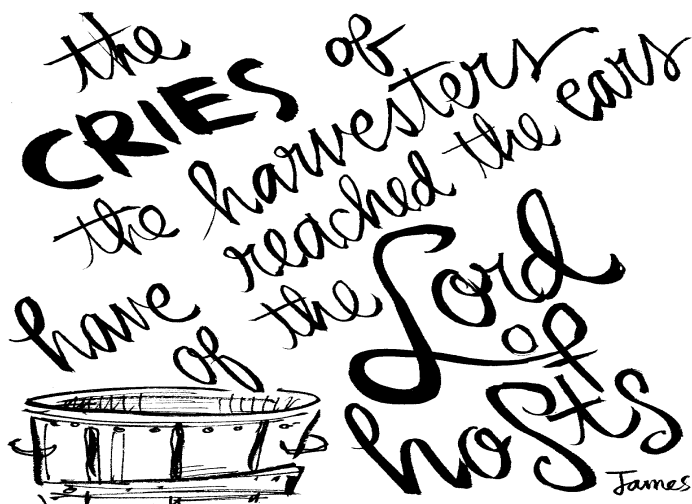 the
CRIES of
the harvesters
have reached the ears
of the Lord
of
hosts
James